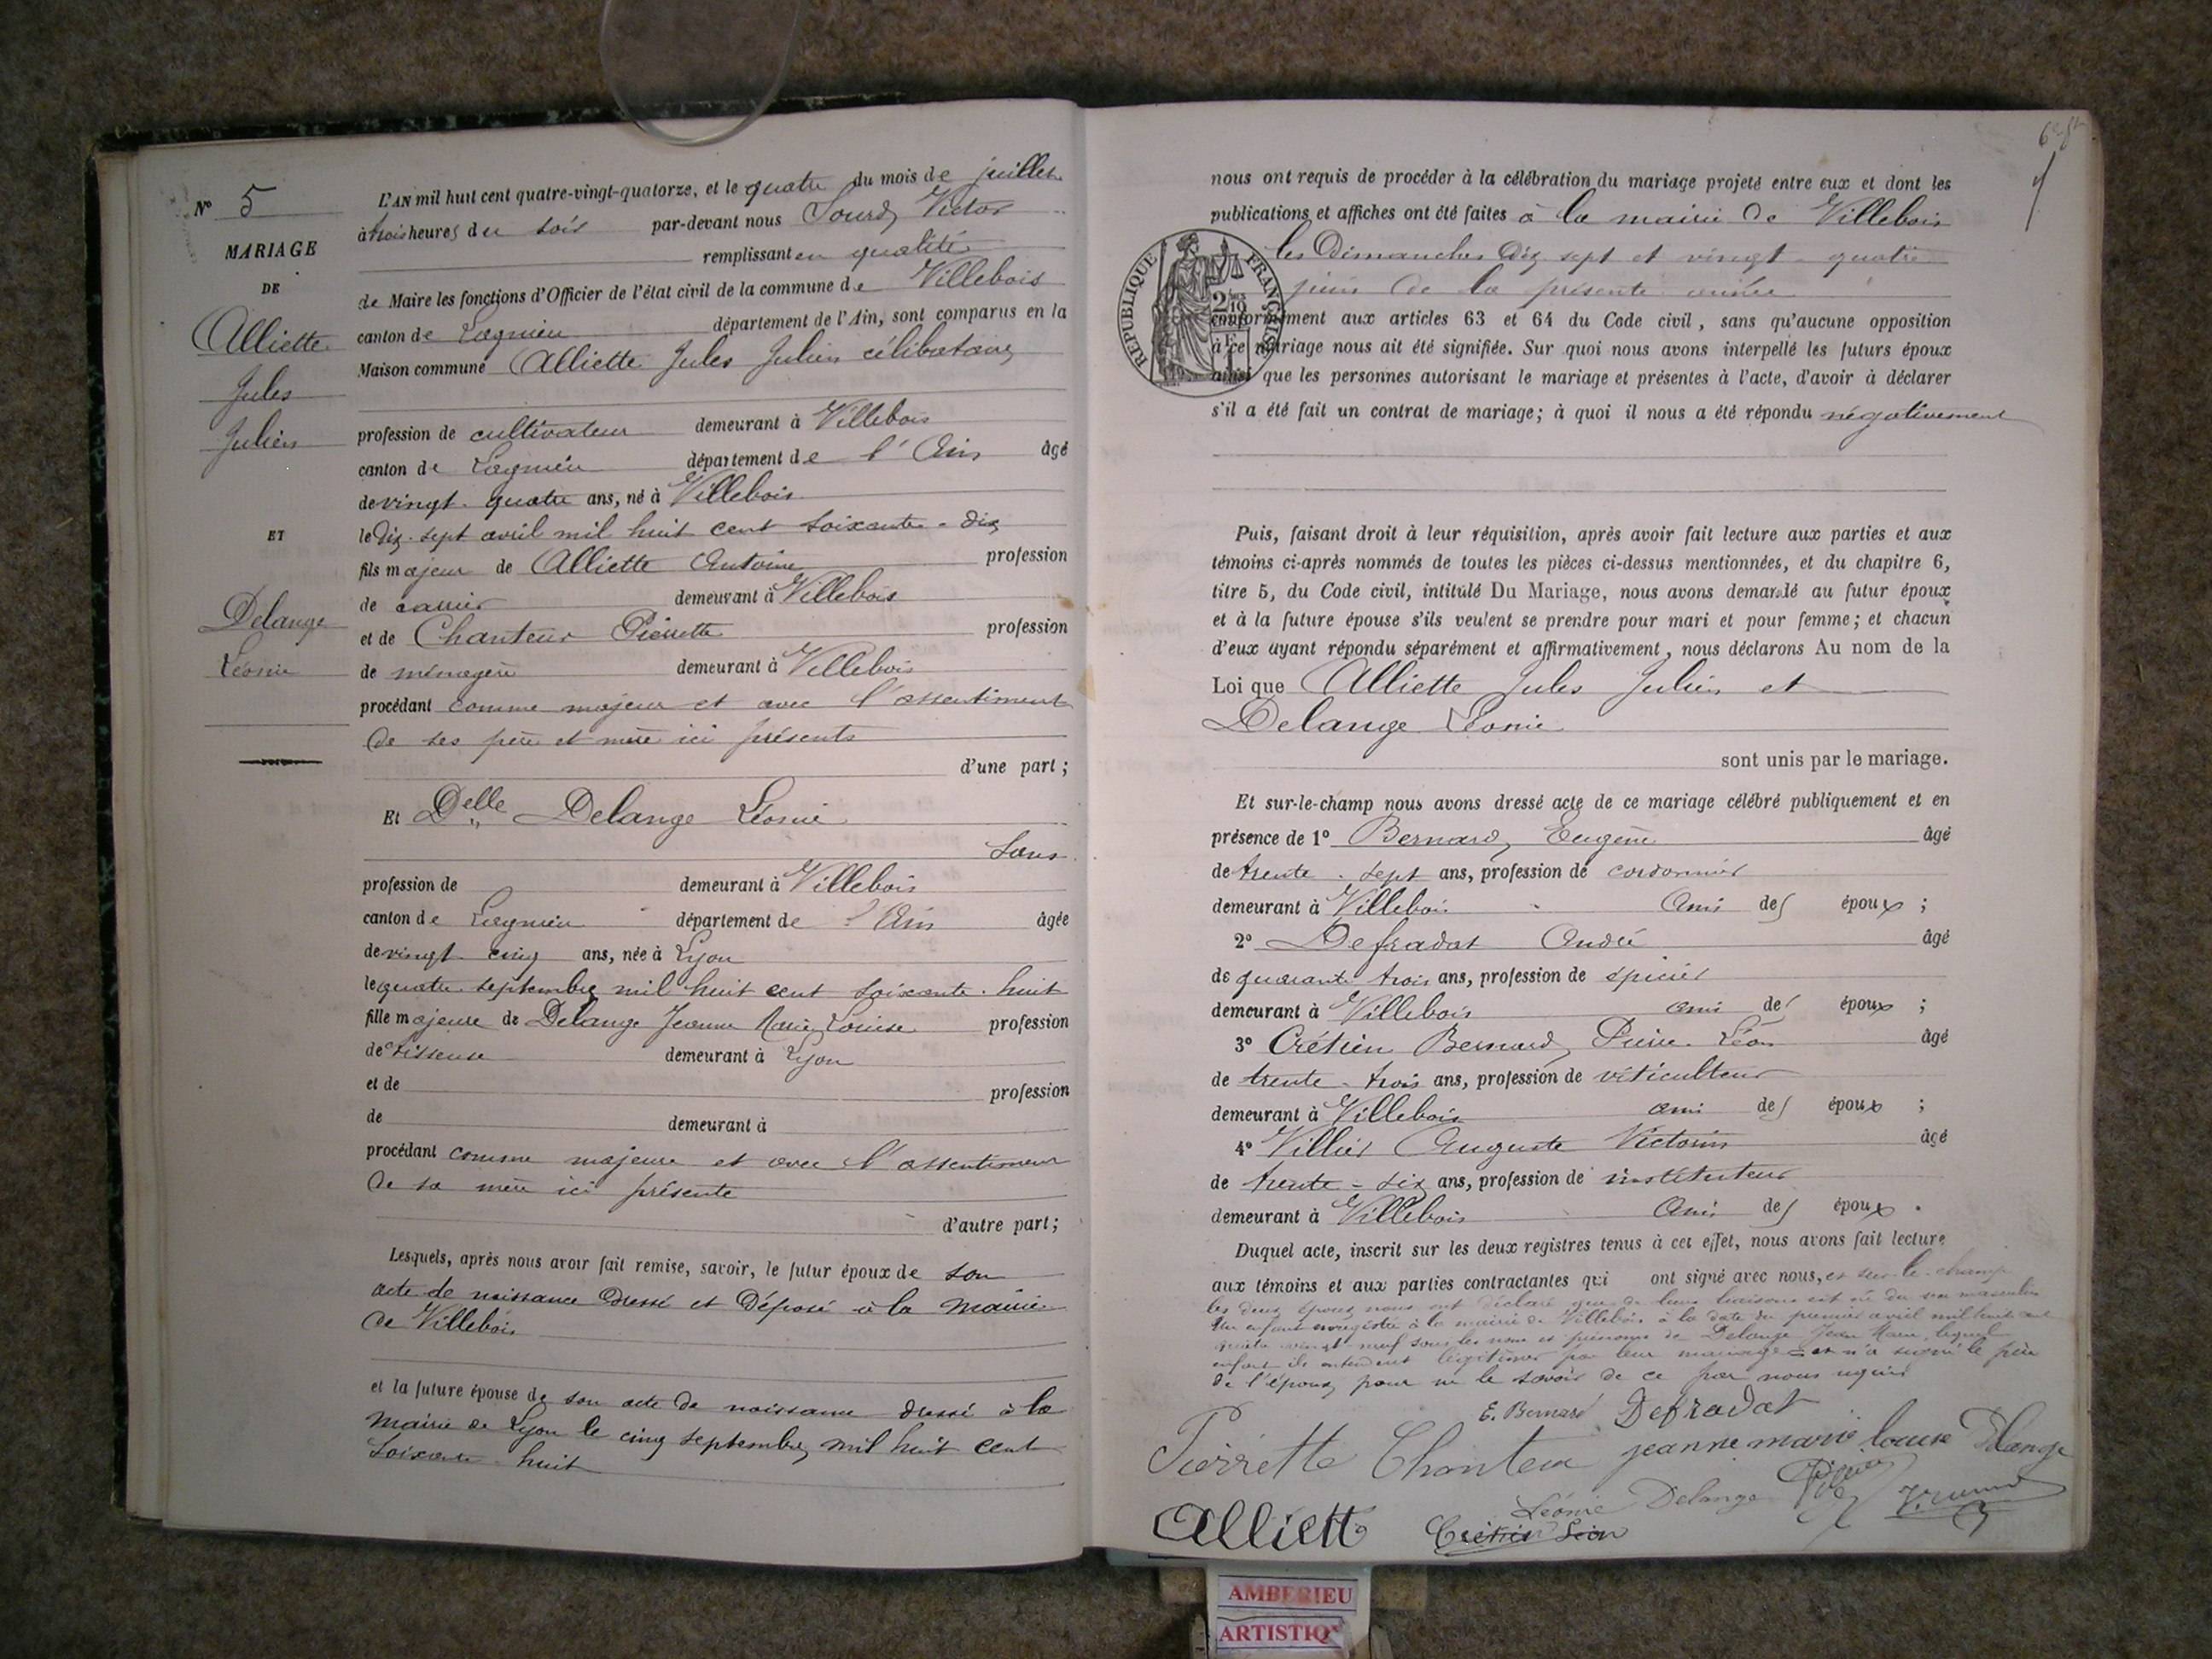 N° 5
MARIAGE
DE
Alliette
Jules
Julien
ET
Delange
Léonie
L'AN mil huit cent quatre-vingt-quatorze, et le quatre du mois de juillet
à trois heures du soir par-devant nous Sourd Victor
remplissant en qualité
de Maire les fonctions d'Officier de l'état civil de la commune de Villebois
canton de Lagnieu département de l'Ain, sont comparus en la
Maison commune Alliette Jules Julien célibataire
profession de cultivateur demeurant à Villebois
canton de Lagnieu département de l'Ain âgé
de vingt-quatre ans, né à Villebois
le dix-sept avril mil huit cent soixante-dix
fils majeur de Alliette Antoine profession
de carrier demeurant à Villebois
et de Chanteur Pierrette profession
de ménagère demeurant à Villebois
procédant comme majeur et avec l'assentiment
de ses père et mère ici présents
d'une part ;
Et Delle Delange Léonie
sans
profession de demeurant à Villebois
canton de Lagnieu département de l'Ain âgée
de vingt-cinq ans, née à Lyon
le quatre septembre mil huit cent soixante-huit
fille majeure de Delange Jeanne Marie Louise profession
de tisseuse demeurant à Lyon
et de profession
de demeurant à
procédant comme majeure et avec l'assentiment
de sa mère ici présente
d'autre part ;
Lesquels, après nous avoir fait remise, savoir, le futur époux de son
acte de naissance dressé et déposé à la mairie
de Villebois
et la future épouse de son acte de naissance dressé à la
mairie de Lyon le cinq septembre mil huit cent
soixante-huit
nous ont requis de procéder à la célébration du mariage projeté entre eux et dont les
publications et affiches ont été faites à la mairie de Villebois
les dimanches dix-sept et vingt-quatre
juin de la présente année
RÉPUBLIQUE FRANÇAISE
conformément aux articles 63 et 64 du Code civil, sans qu'aucune opposition
à ce mariage nous ait été signifiée. Sur quoi nous avons interpellé les futurs époux
ainsi que les personnes autorisant le mariage et présentes à l'acte, d'avoir à déclarer
s'il a été fait un contrat de mariage ; à quoi il nous a été répondu négativement
Puis, faisant droit à leur réquisition, après avoir fait lecture aux parties et aux
témoins ci-après nommés de toutes les pièces ci-dessus mentionnées, et du chapitre 6,
titre 5, du Code civil, intitulé Du Mariage, nous avons demandé au futur époux
et à la future épouse s'ils veulent se prendre pour mari et pour femme ; et chacun
d'eux ayant répondu séparément et affirmativement, nous déclarons Au nom de la
Loi que Alliette Jules Julien et
Delange Léonie
sont unis par le mariage.
Et sur-le-champ nous avons dressé acte de ce mariage célébré publiquement et en
présence de 1° Bernard Eugène âgé
de trente-sept ans, profession de cordonnier
demeurant à Villebois ami des époux ;
2° Defradat André âgé
de quarante trois ans, profession de épicier
demeurant à Villebois ami des époux ;
3° Crétien Bernard Pierre Léon âgé
de trente-trois ans, profession de viticulteur
demeurant à Villebois ami des époux ;
4° Villier Auguste Victorin âgé
de trente-six ans, profession de instituteur
demeurant à Villebois ami des époux.
Duquel acte, inscrit sur les deux registres tenus à cet effet, nous avons fait lecture
aux témoins et aux parties contractantes qui ont signé avec nous, et sur-le-champ
les deux époux nous ont déclaré que de leur liaison est né du sexe masculin
un enfant enregistré à la mairie de Villebois à la date du premier avril mil huit cent
quatre-vingt-neuf sous les nom et prénoms de Delange Jean Marie, lequel
enfant ils entendent légitimer par leur mariage et n'a signé le père
de l'époux pour ne le savoir de ce par nous requis
E. Bernard Defradat
Pierrette Chanteur jeanne marie louise Delange
Léonie Delange
Alliette Crétien Léon
AMBERIEU
ARTISTIQ